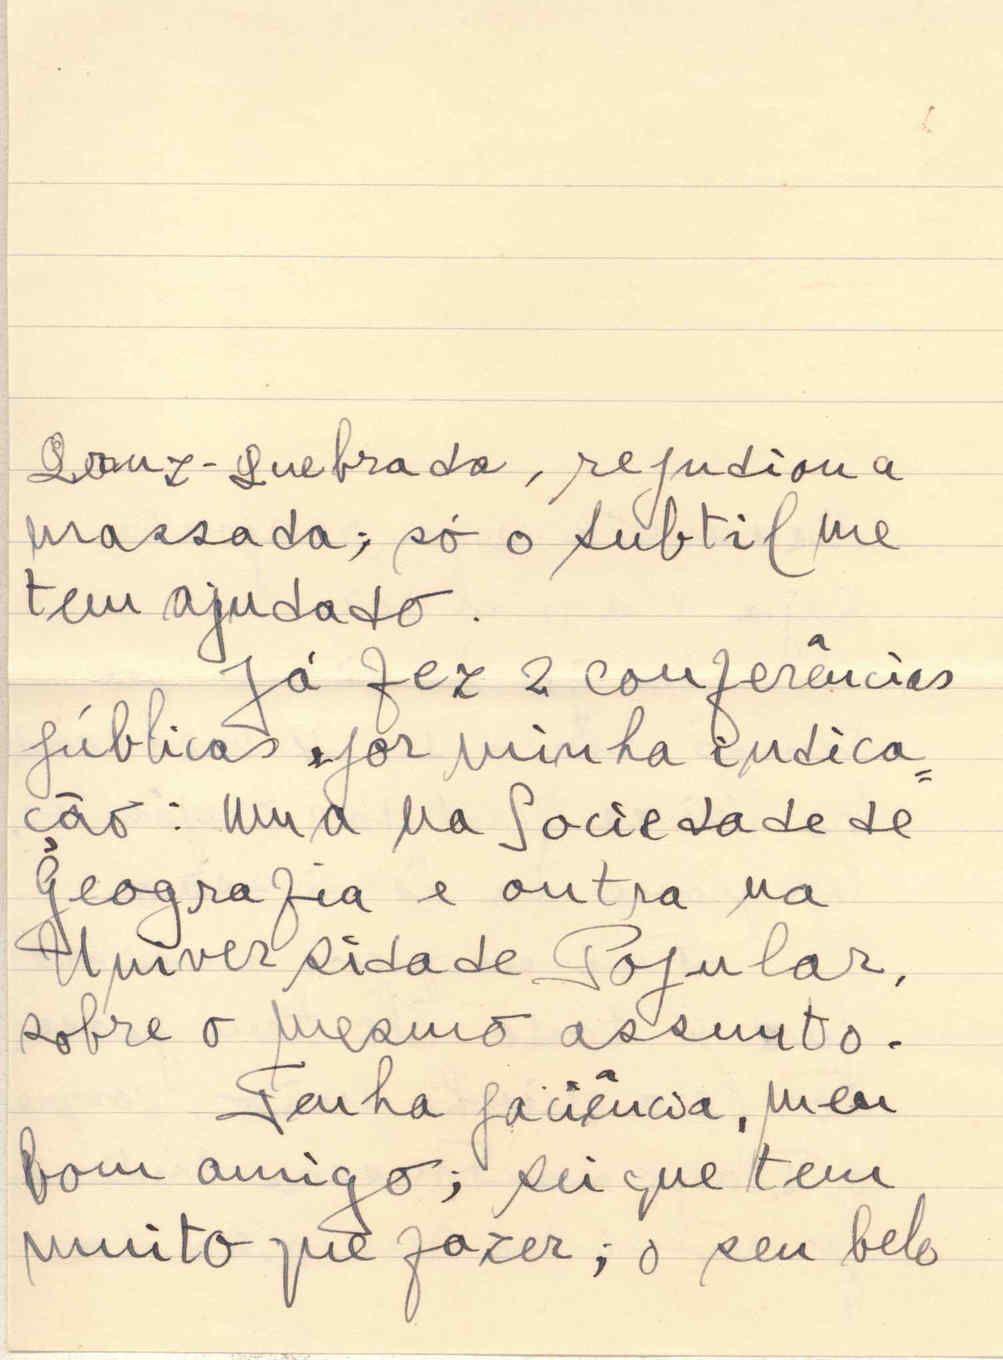 Cruz-Quebrada, repudiou a
massada; só o Subtil me
tem ajudado.
Já fez 2 conferências
públicas, por minha indica=
ção: uma na Sociedade de
Geografia e outra na
Universidade Popular,
sobre o mesmo assunto.
Tenha paciência, meu
bom amigo; sei que tem
muito que fazer; o seu belo